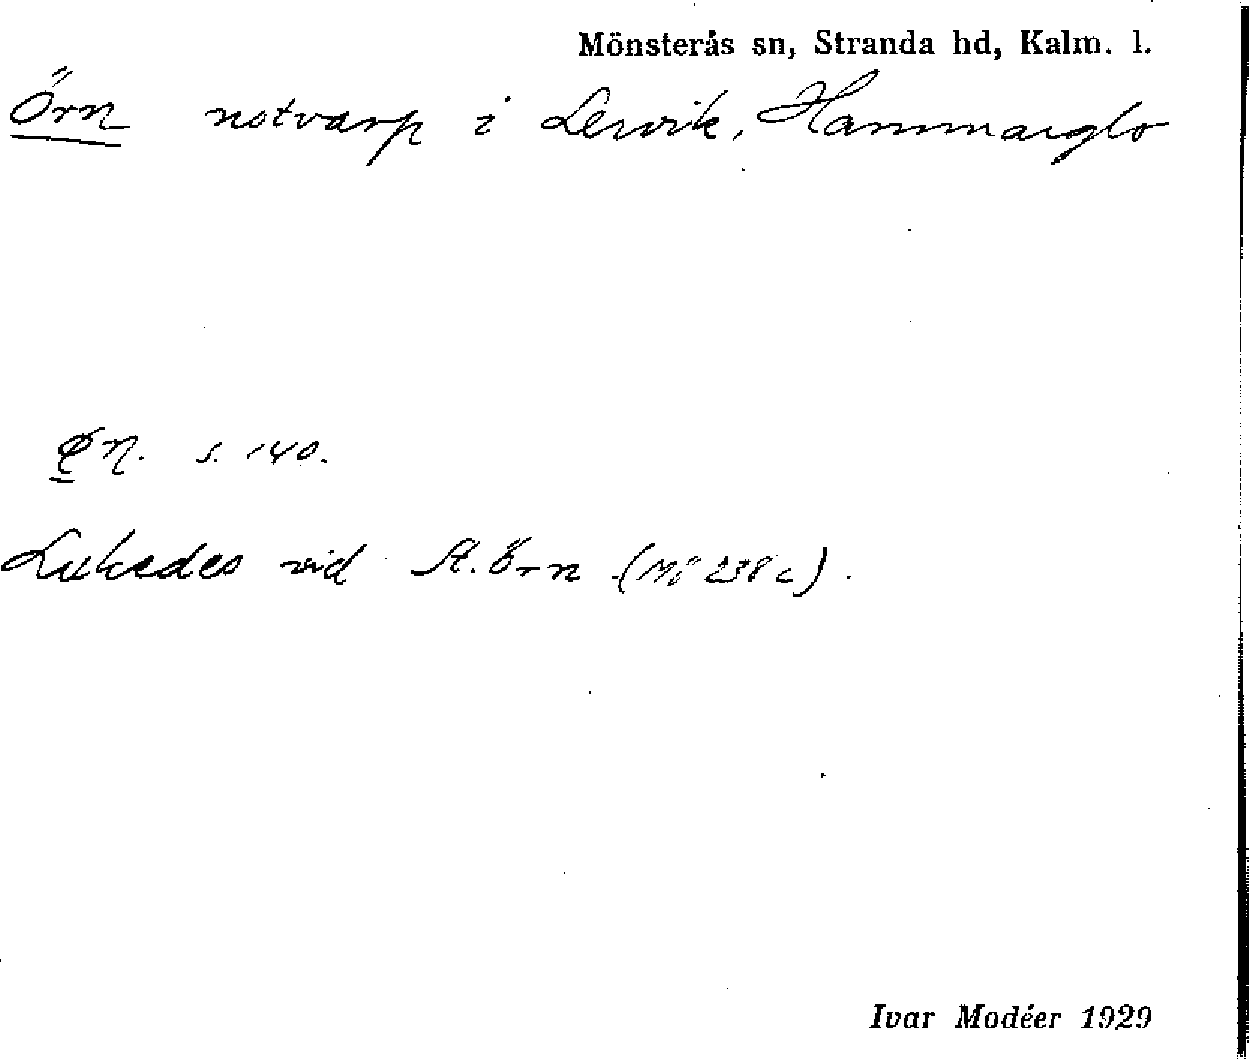 Mönsterås sn, Stranda hd, Kalm. l.
Örn notvarp i Lervik, Hammarglo
s. 140.
Lukades vid St. Örn (Mö 238 c).
Ivar Modéer 1929